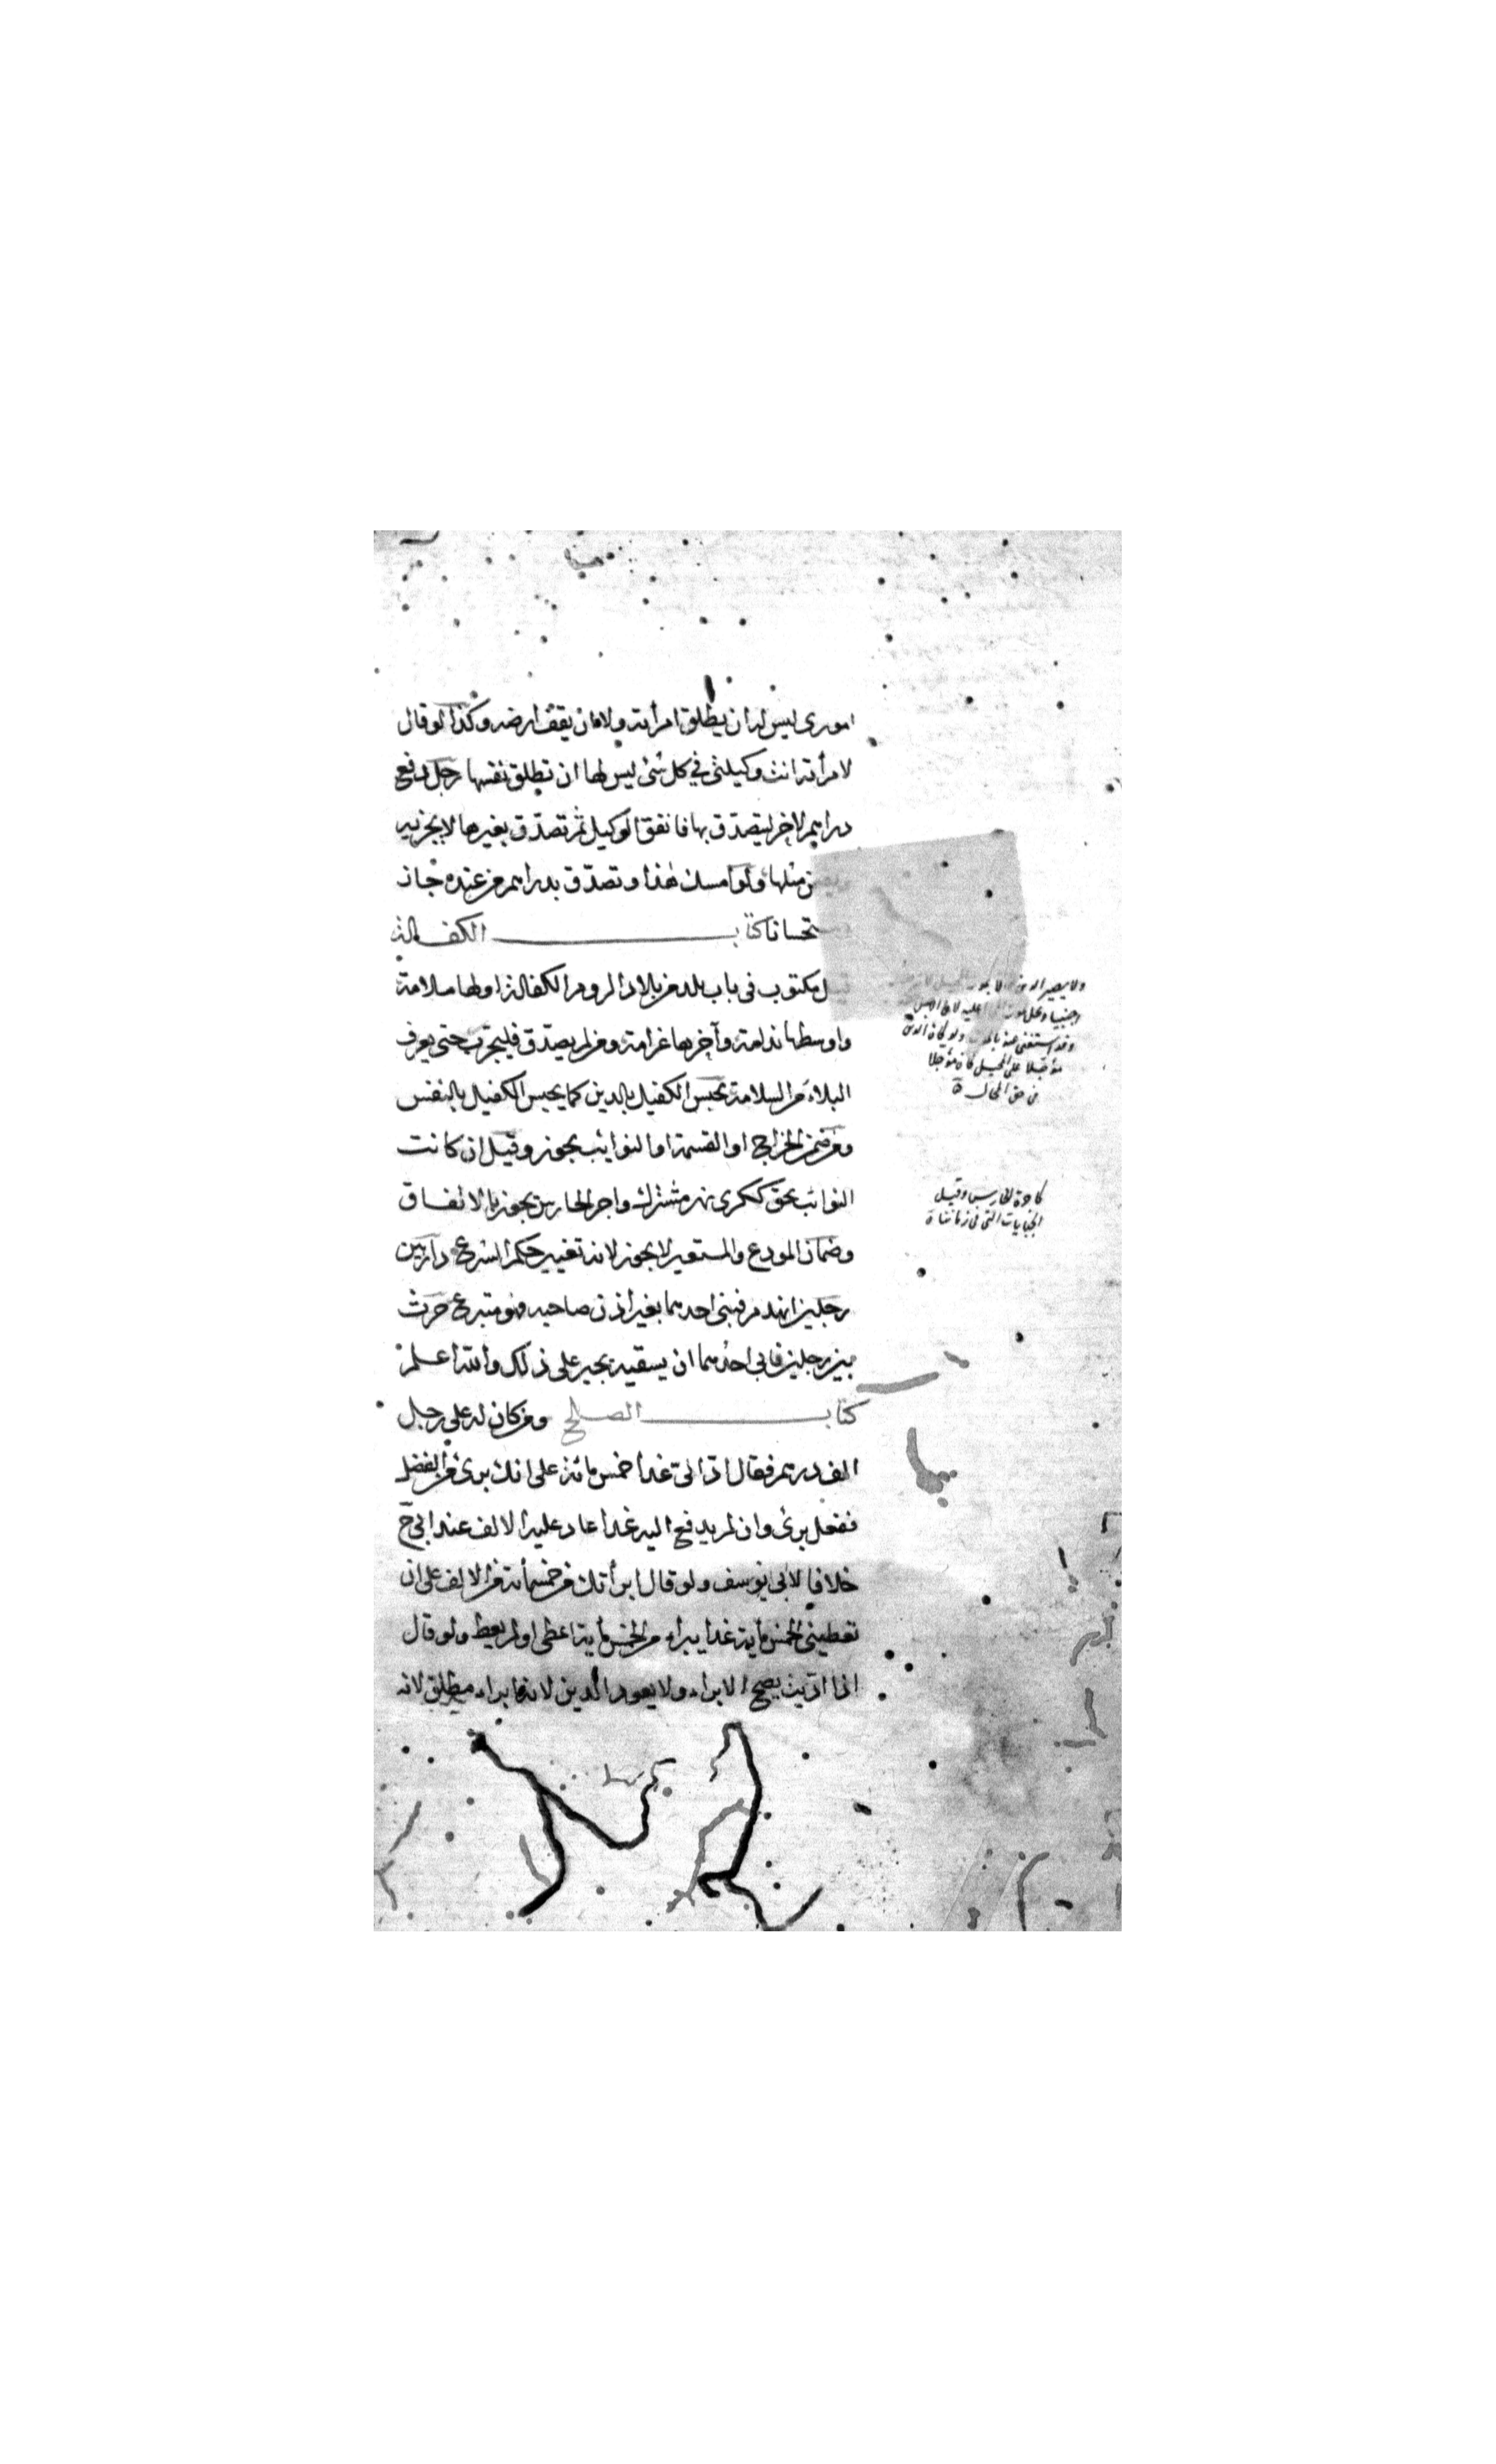 امورى ليس له ان يطلق امرأته ولا ان يقف ارضه وكذا لو قال
لامرأته انت وكيلتى في كل شئ ليس لها ان تطلق نفسها رجل دفع
دراهم لاخر ليتصدق بها فانفق الوكيل ثم تصدق بغيرها لا يجزيه
مثلها ولو امسك هذا وتصدق بدراهم من عنده جاز
كتاب الكفالة
مكتوب فى باب بلد من بلاد الروم الكفالة اولها ملامة
واوسطها ندامة وآخرها غرامة ومن لم يصدق فليجرب حتى يعرف
البلاء من السلامة يحبس الكفيل بالدين كما يحبس الكفيل بالنفس
ومن ضمن الخراج او القسمة او النوائب يجوز وقيل ان كانت
النوائب بحق ككرى نهر مشترك واجر الحارس يجوز بالاتفاق
وضمان المودع والمستعير لا يجوز لانه تغيير حكم الشرع دار بين
رجلين انهدم فبنى احدهما بغير اذن صاحبه فهو متبرع حرث
بين رجلين فابى احدهما ان يسقيه يجبر على ذلك والله اعلم
كتاب الصلح ومن كان له على رجل
الف درهم فقال ادّ الىّ غدا خمس مائة على انك برئ من الفضل
ففعل برئ وان لم يدفع اليه غدا عاد عليه الالف عند ابى ح
خلافا لابى يوسف ولو قال ابرأتك من خمسمائة من الالف على ان
تعطينى الخمس مأية غدا يبراء من الخمس مأية اعطى او لم يعط ولو قال
اذا اديت يصح الابراء ولا يعود الدين لانه ابراء مطلق لانه
ولا يصير الدين
عليه لان
وقد استغنى عنه ولو كان الدين
مؤجلا على الكفيل كان مؤجلا
فى حق
الحارس وقيل
الجنايات التى فى زماننا